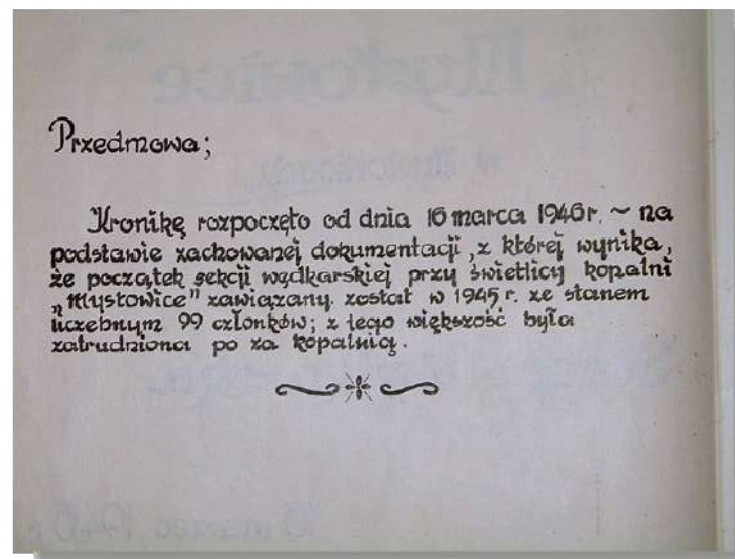 Przedmowa;
Kronikę rozpoczęto od dnia 16 marca 1946 r. ~ na
podstawie zachowanej dokumentacji, z której wynika,
że początek sekcji wędkarskiej przy świetlicy kopalni
„Mysłowice" zawiązany został w 1945 r. ze stanem
liczebnym 99 członków; z tego większość była
zatrudniona po za kopalnią.